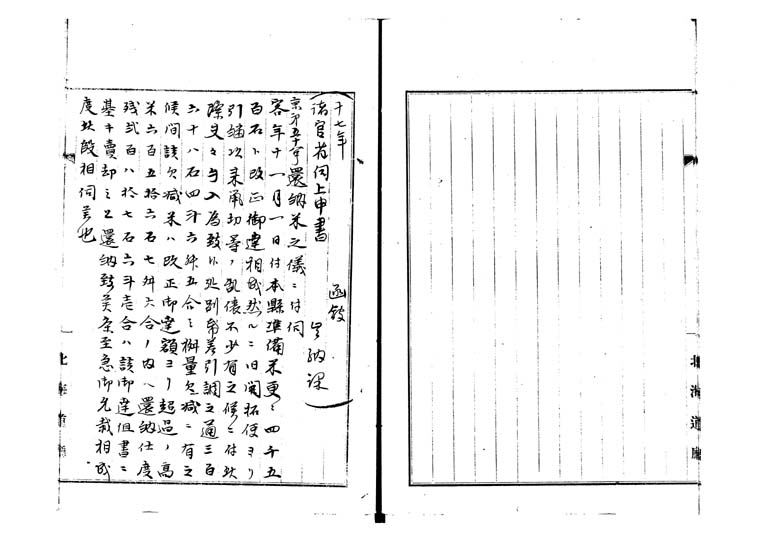 十七年
諸官省伺上申書
函館
出納課
京第五十号還納米之儀ニ付伺
客年十一月一日付本縣準備米更ニ四千五
百石ト改正御達相成然ルニ旧開拓使ヨリ
引継次米俵切等ノ敗俵不少有之候ニ付此
際夫々手入為致候処別紙差引調之通三百
六十八石四斗六舛五合之桝量欠減ニ有之
候間該欠減米ハ改正御達額ヨリ超過ノ高
米六百五拾六石七舛六合ノ内ヘ還納仕度
残弐百八拾七石六斗壱合ハ該御達但書ニ
基キ賣却之上還納致美条至急御允裁相成
度此段相伺候也
北海道廳